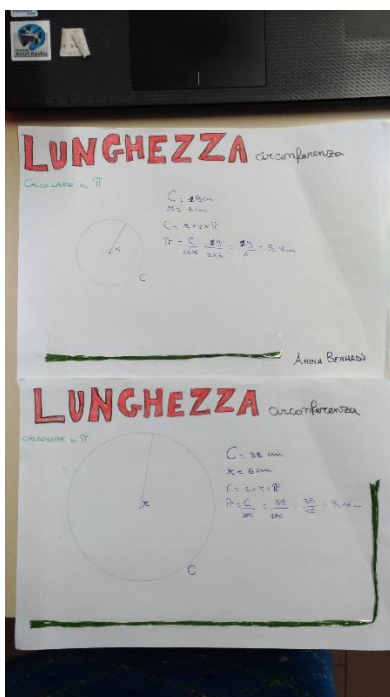 LUNGHEZZA circonferenza
CALCOLARE IL π
C = 19 cm
r = 3 cm
C = r × 2 × π
π = C / 2×r = 19 / 2×3 = 19 / 6 = 3,16 cm
r
C
AMINA
LUNGHEZZA circonferenza
CALCOLARE IL π
C = 38 cm
r = 6 cm
C = 2 × r × π
π = C / 2r = 38 / 2×6 = 38 / 12 = 3,16 cm
r
C